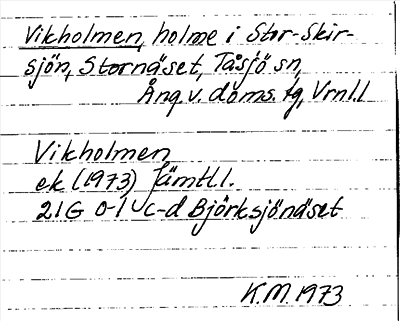 Vikholmen, holme i Stor-Skir-
sjön, Stornäset, Tåsjö sn,
Ång. v. doms. tg, Vrnl.l
Vikholmen
ek (1973) Jämtl.l.
21G 0-1 c-d Björksjönäset
K.M. 1973